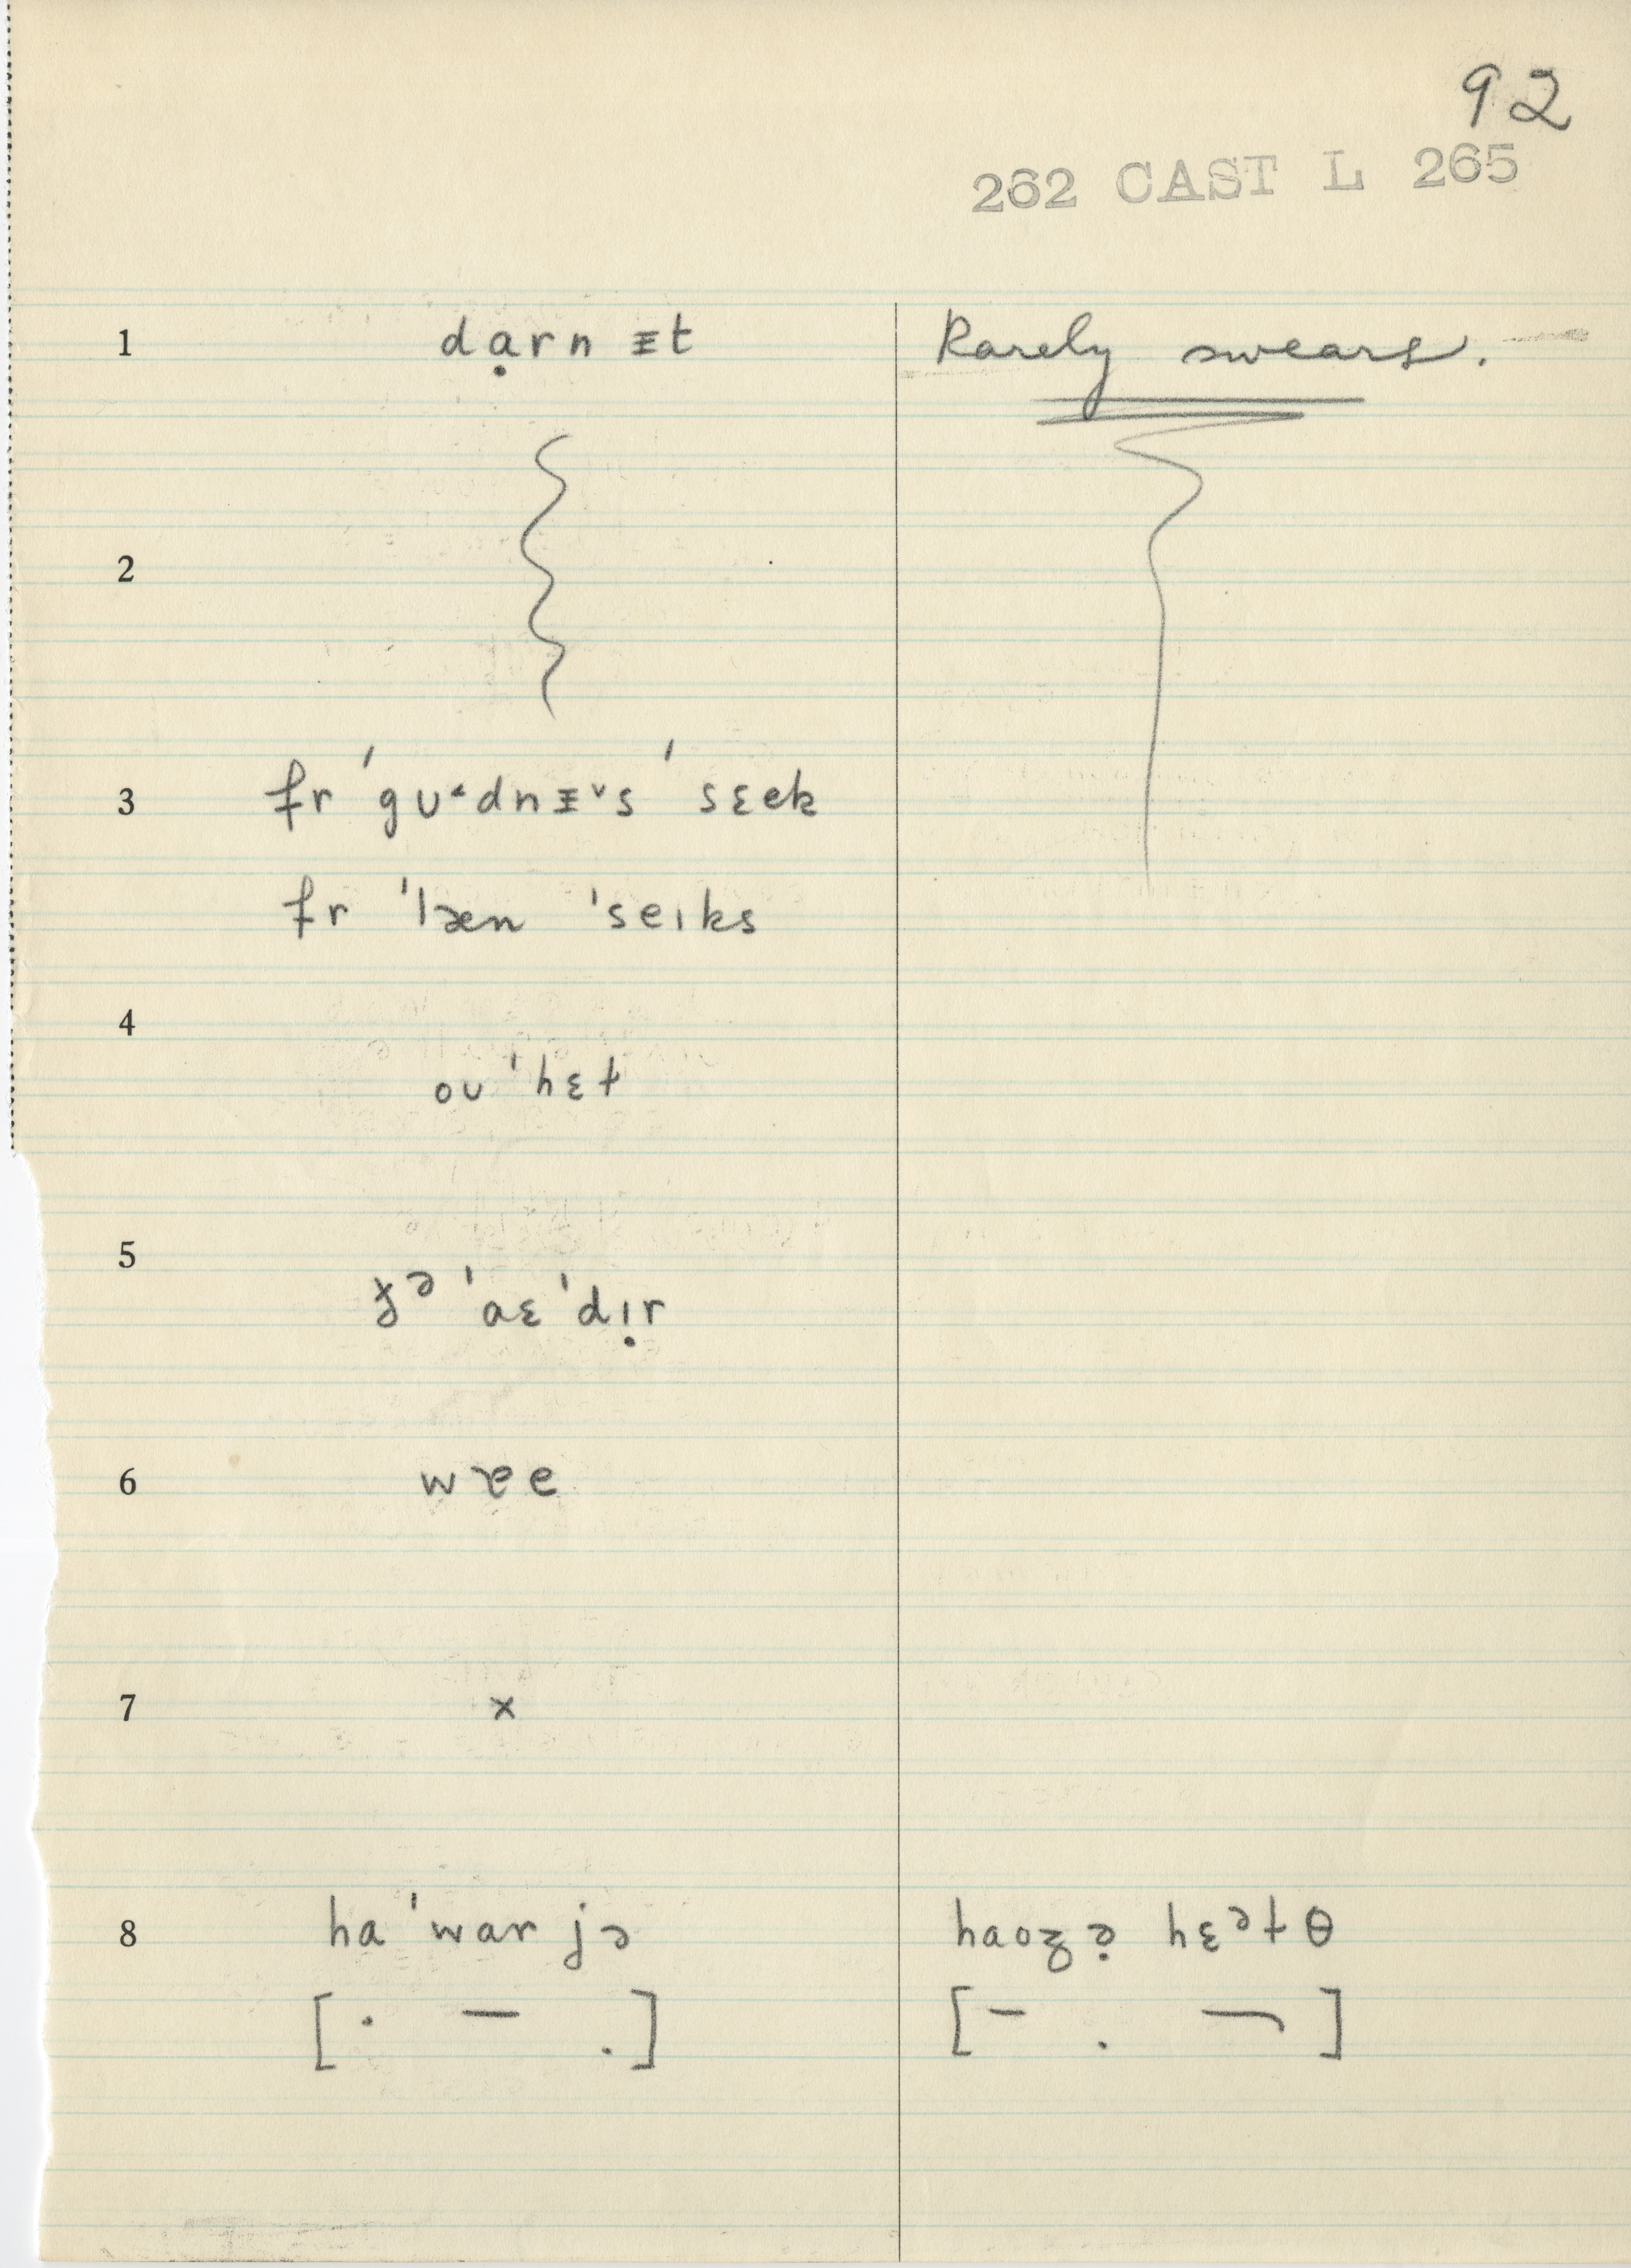 92
262 CAST L 265
1 dạrn ᵻt Rarely swears.
2
3 fr ˈgʊ˂dnᵻ˅s ˈsɛek
fr ˈlæn ˈseɪks
4
oʊ ˈhɛɫ
5
ˈaɛ ˈdɪ̣r
6 wɐe
7 x
8 haˈwar jə haoz ə̣ hɛᵊɫθ
[· — .] [– . ¬]